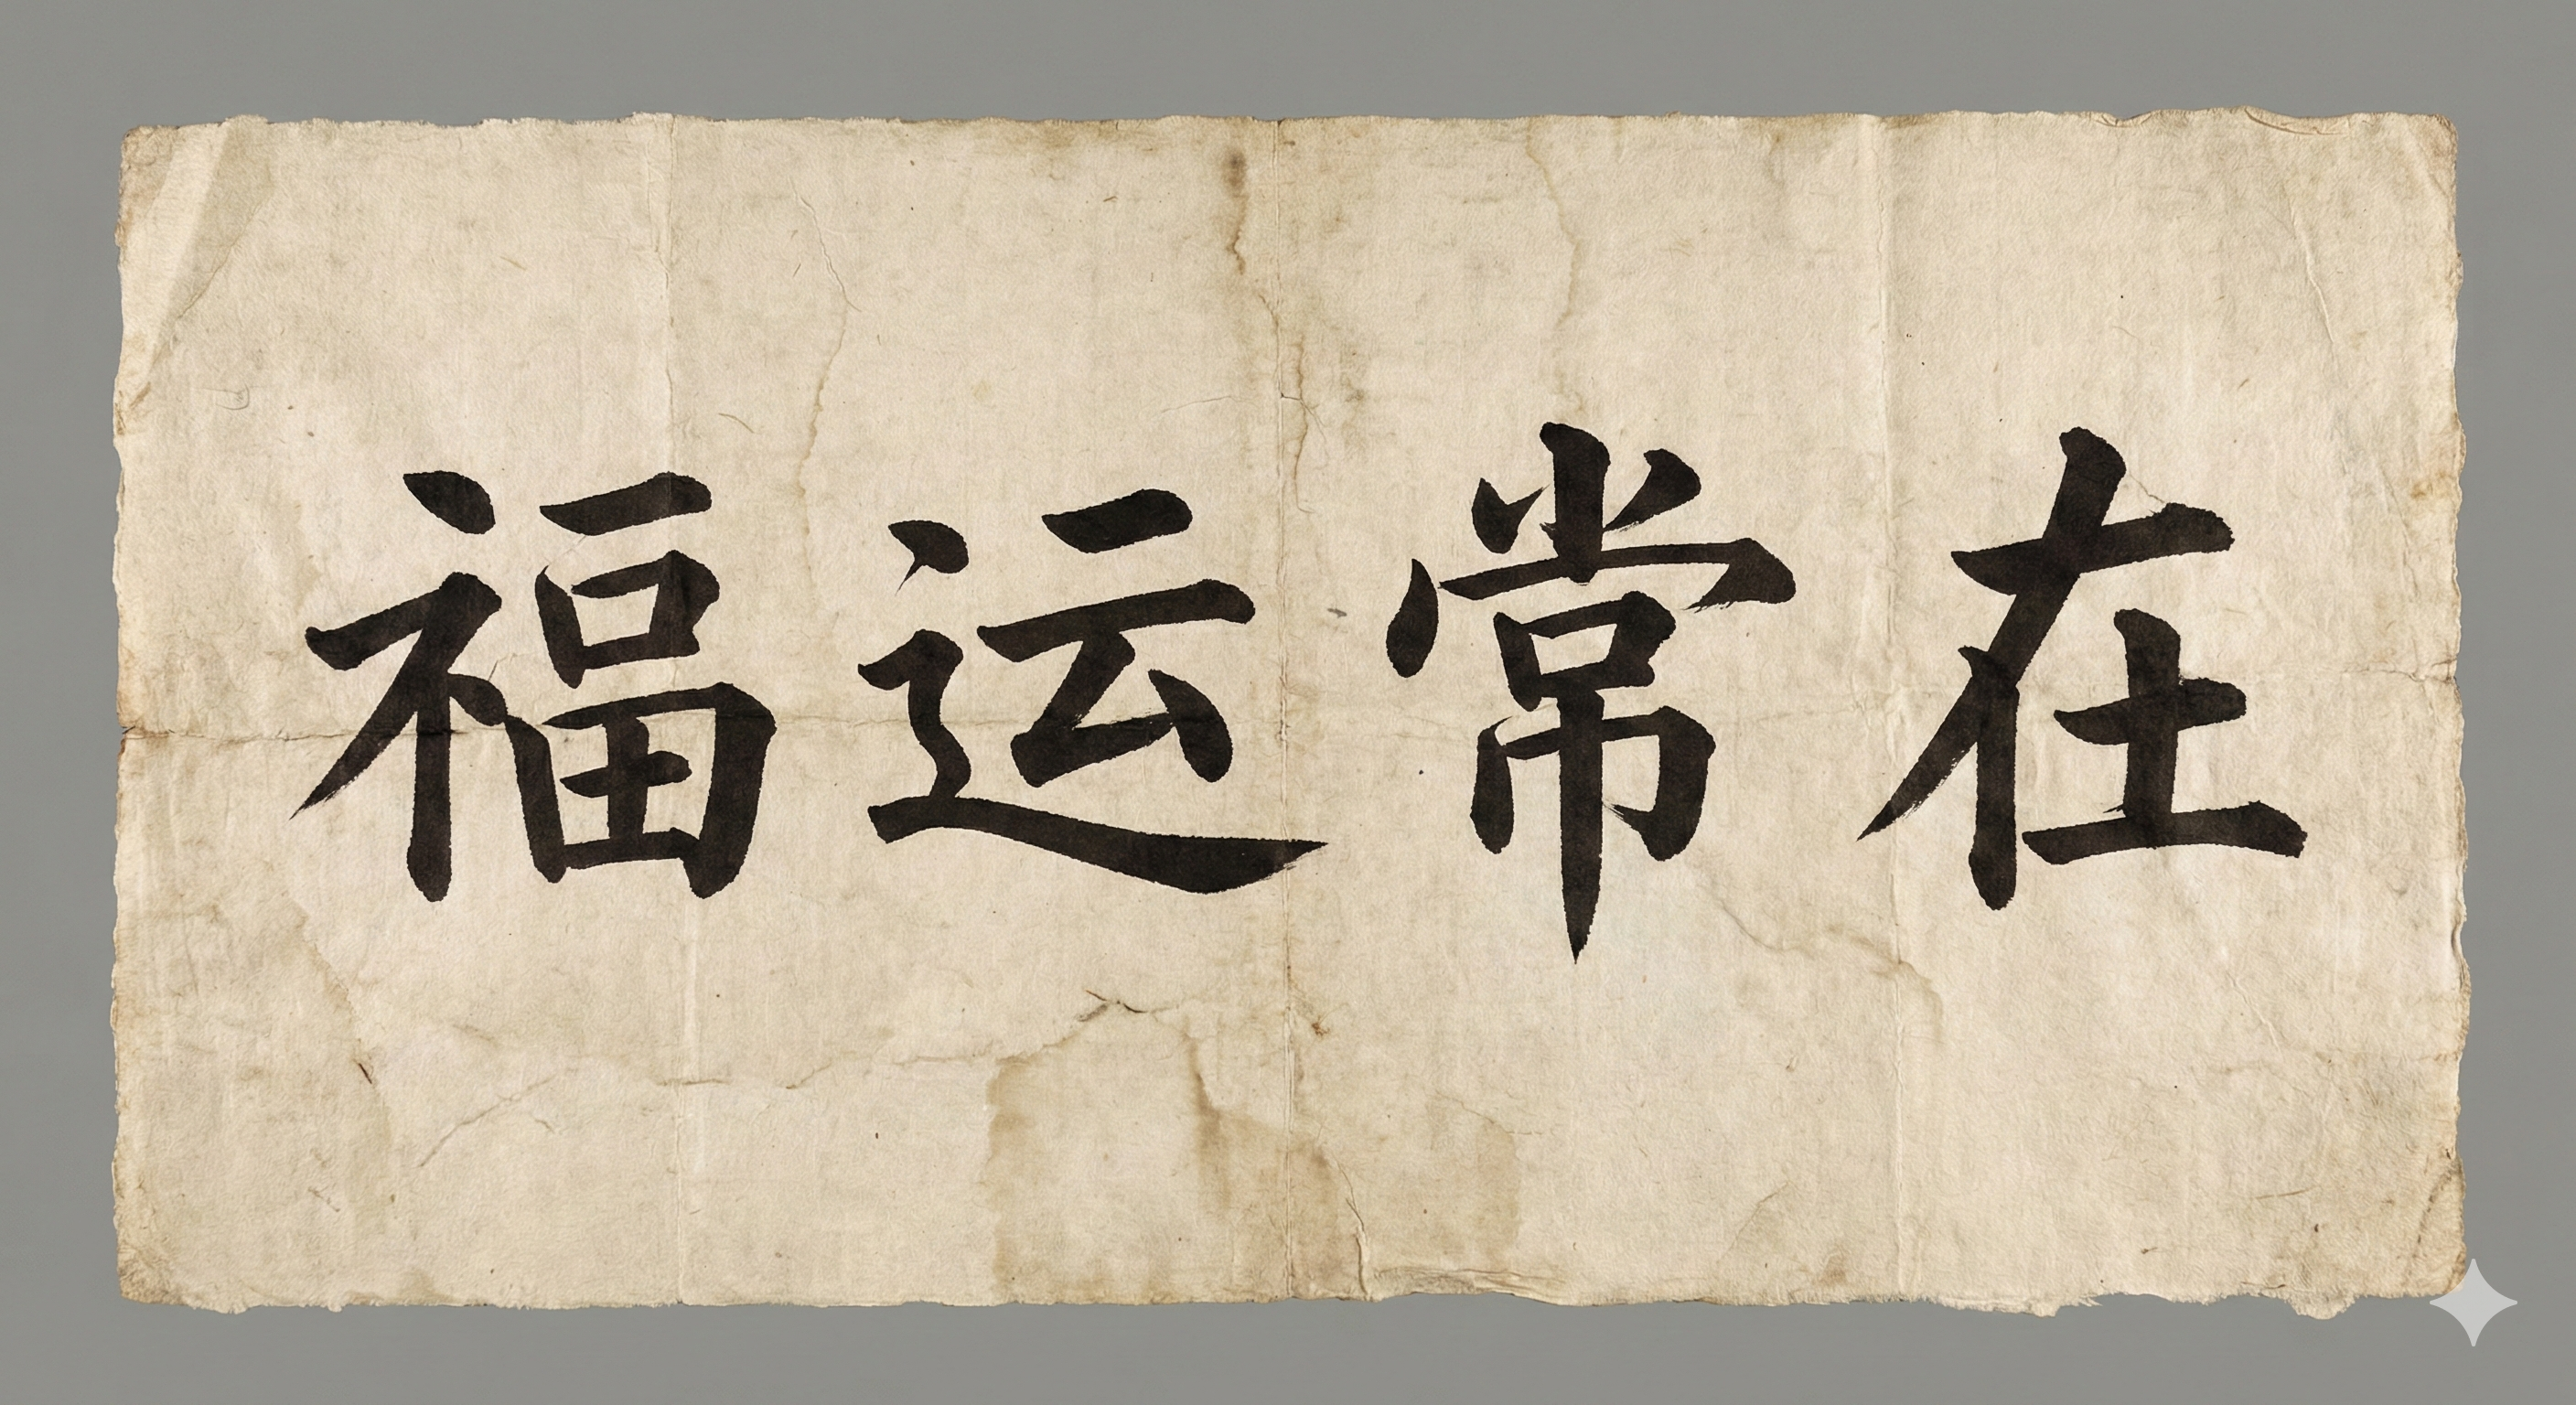 福运常在